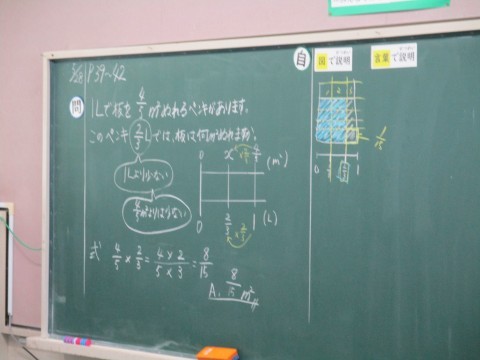 5/8 P39~42
自 図で説明 言葉で説明
問 1Lで板を4/5m²ぬれるペンキがあります。
このペンキ2/3Lでは、板は何m²ぬれますか。
1Lより少ない
4/5m²よりは少ない
0 x 4/5 (m²)
0 2/3 1 (L)
×2/3
式 4/5 × 2/3 = 4×2/5×3 = 8/15
A. 8/15 m²
1 2 3
1/15
0 1